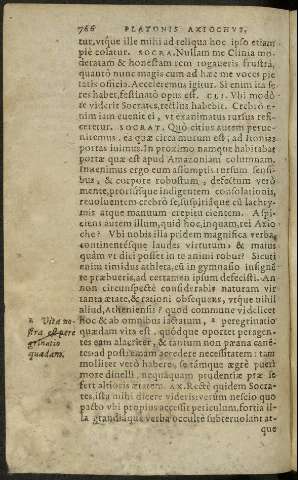 766 PLATONIS AXIOCHVS,
tur, vtque ille mihi ad reliqua hoc ipso etiam
piè colatur. SOCRA. Nullam me Clinia mo-
deratam & honestam rem rogaueris frustrà,
quantò nunc magis cum ad hæc me voces pie
tatis officia. Acceleremus igitur. Si enim ita se
res habet, festinato opus est. CLI. Vbi modò
te viderit Socrates, rectius habebit. Crebrò e-
nim iam euenit ei, vt exanimatus rursus refi-
ceretur. SOCRAT. Quò citius autem perue-
niremus, ea quæ circa murum est, ad Itonias
portas iuimus. In proximo namque habitabat
portæ quæ est apud Amazoniam columnam.
Inuenimus ergo eum assumptis rursum sensi-
bus, & corpore robustum, defectum verò
mente, prorsusque indigentem consolationis,
reuoluentem crebrò se, suspiriisque cū lachry-
mis atque manuum crepitu cientem. Aspi-
ciens autem illum, quid hoc, inquam, rei Axio
che? Vbi nobis illa pridem magnifica verba,
continentésque laudes virtutum & maius
quàm vt dici posset in te animi robur? Sicuti
enim timidus athleta, cū in gymnasio insignē
te præbueris, ad certamen ipsum defecisti. An
non circunspectè considerabis naturam vir
tanta ætate, & rationi obsequens, vtque nihil
aliud, Atheniensis? quòd commune videlicet
hoc & ab omnibus iactatum, a peregrinatio
quædam vita est, quódque oportet peragen-
tes eam alacriter, & tantum non pæana canē-
tes ad postremam accedere necessitatem: tam
molliter verò habere, se támque ægrè puerī
more diuelli, nequaquam prudentiæ præ se
fert altioris ætatem. AX. Rectè quidem Socra-
tes ista mihi dicere videris: verùm nescio quo
pacto vbi propius accessit periculum, fortia il-
la grandiáque verba occultè subteruolant at-
que
a Vita no-
stra est pere
grinatio
quædam.